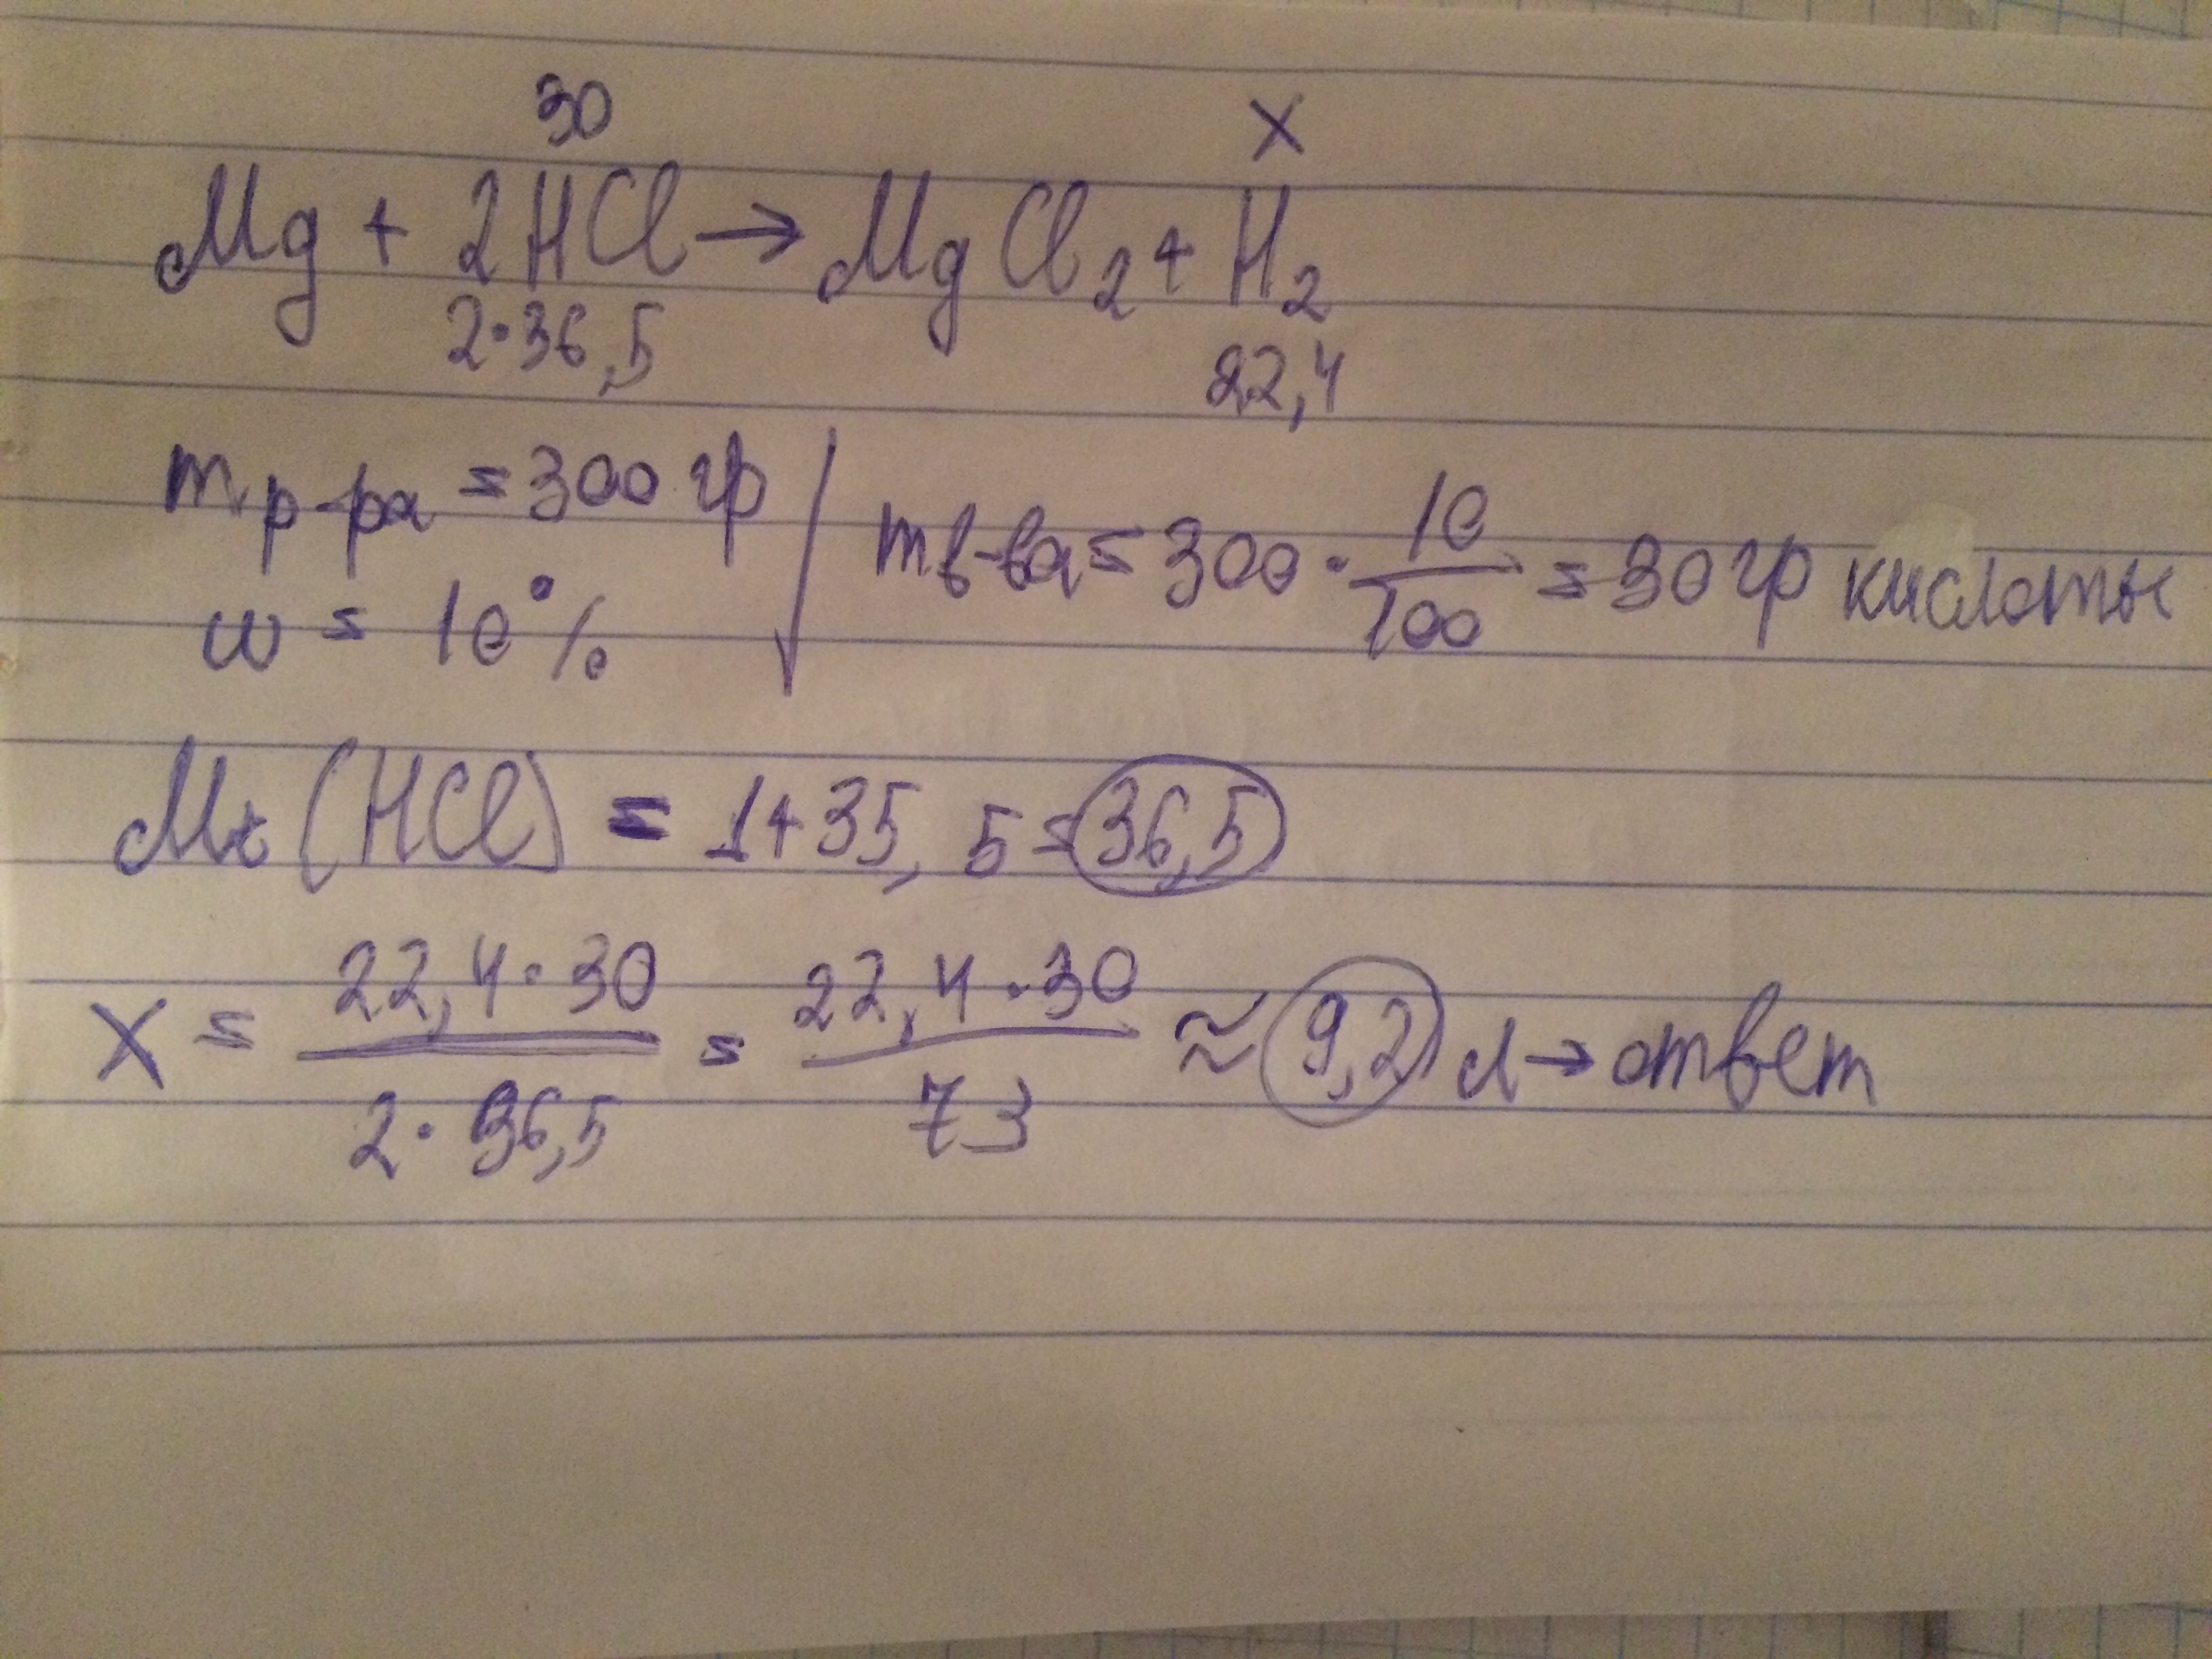 30 X
Mg + 2HCl → MgCl₂ + H₂
2·36,5 22,4
m р-ра = 300 гр
m в-ва = 300 · 10/100 = 30 гр кислоты
w = 10%
Mr (HCl) = 1+35,5=36,5
X = 22,4·30/2·36,5 = 22,4·30/73 ≈ 9,2 л → ответ